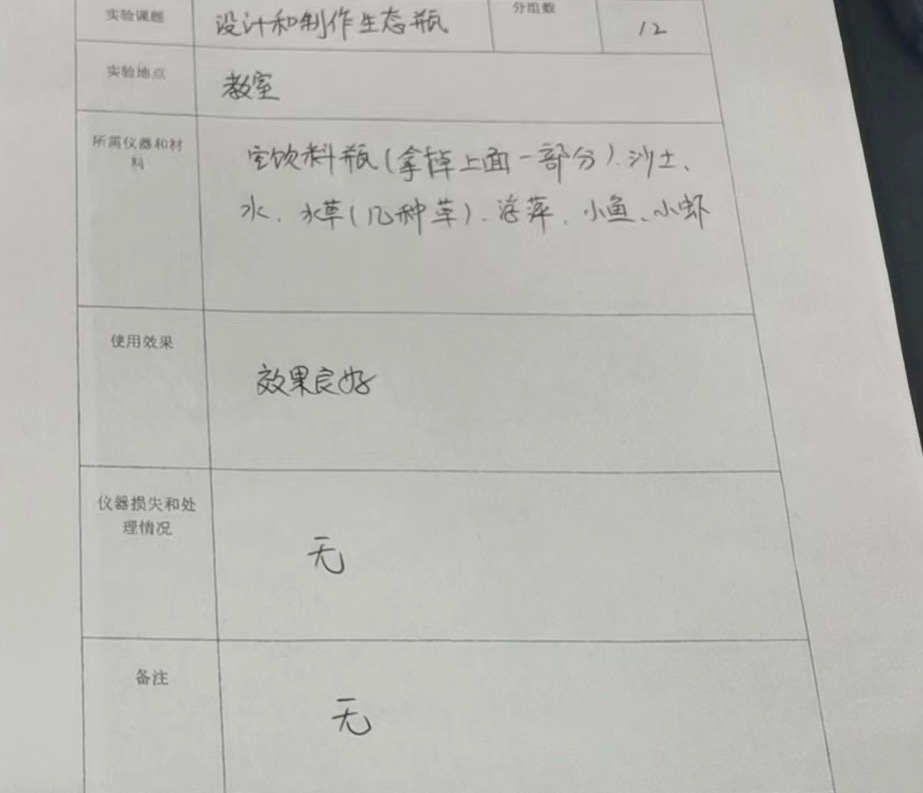 实验课题 设计和制作生态瓶 分组数 12
实验地点 教室
所需仪器和材
料
空饮料瓶(拿掉上面一部分)、沙土、
水、水草(几种草)、浮萍、小鱼、小虾
使用效果 效果良好
仪器损失和处
理情况
无
备注 无